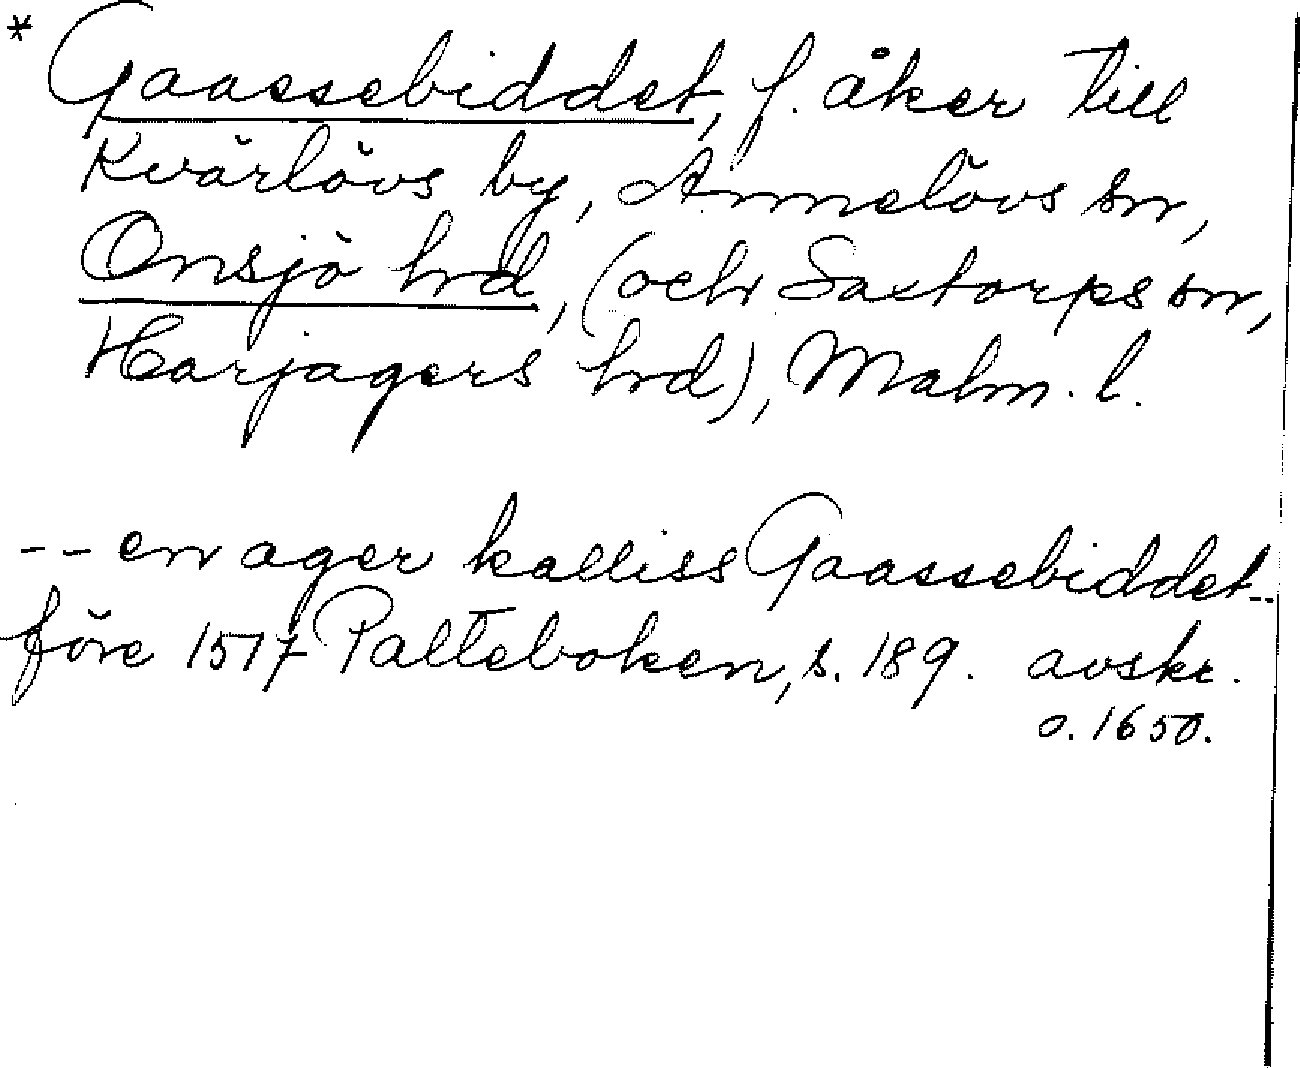 * Gaassebiddet, f. åker till
Kvärlövs by, Annelövs sn,
Onsjö hrd, (och Saxtorps sn,
Harjagers hrd), Malm. l.
-- en ager kalliss Gaassebiddet--
före 1517 Palteboken, s. 189. avskr.
o. 1650.